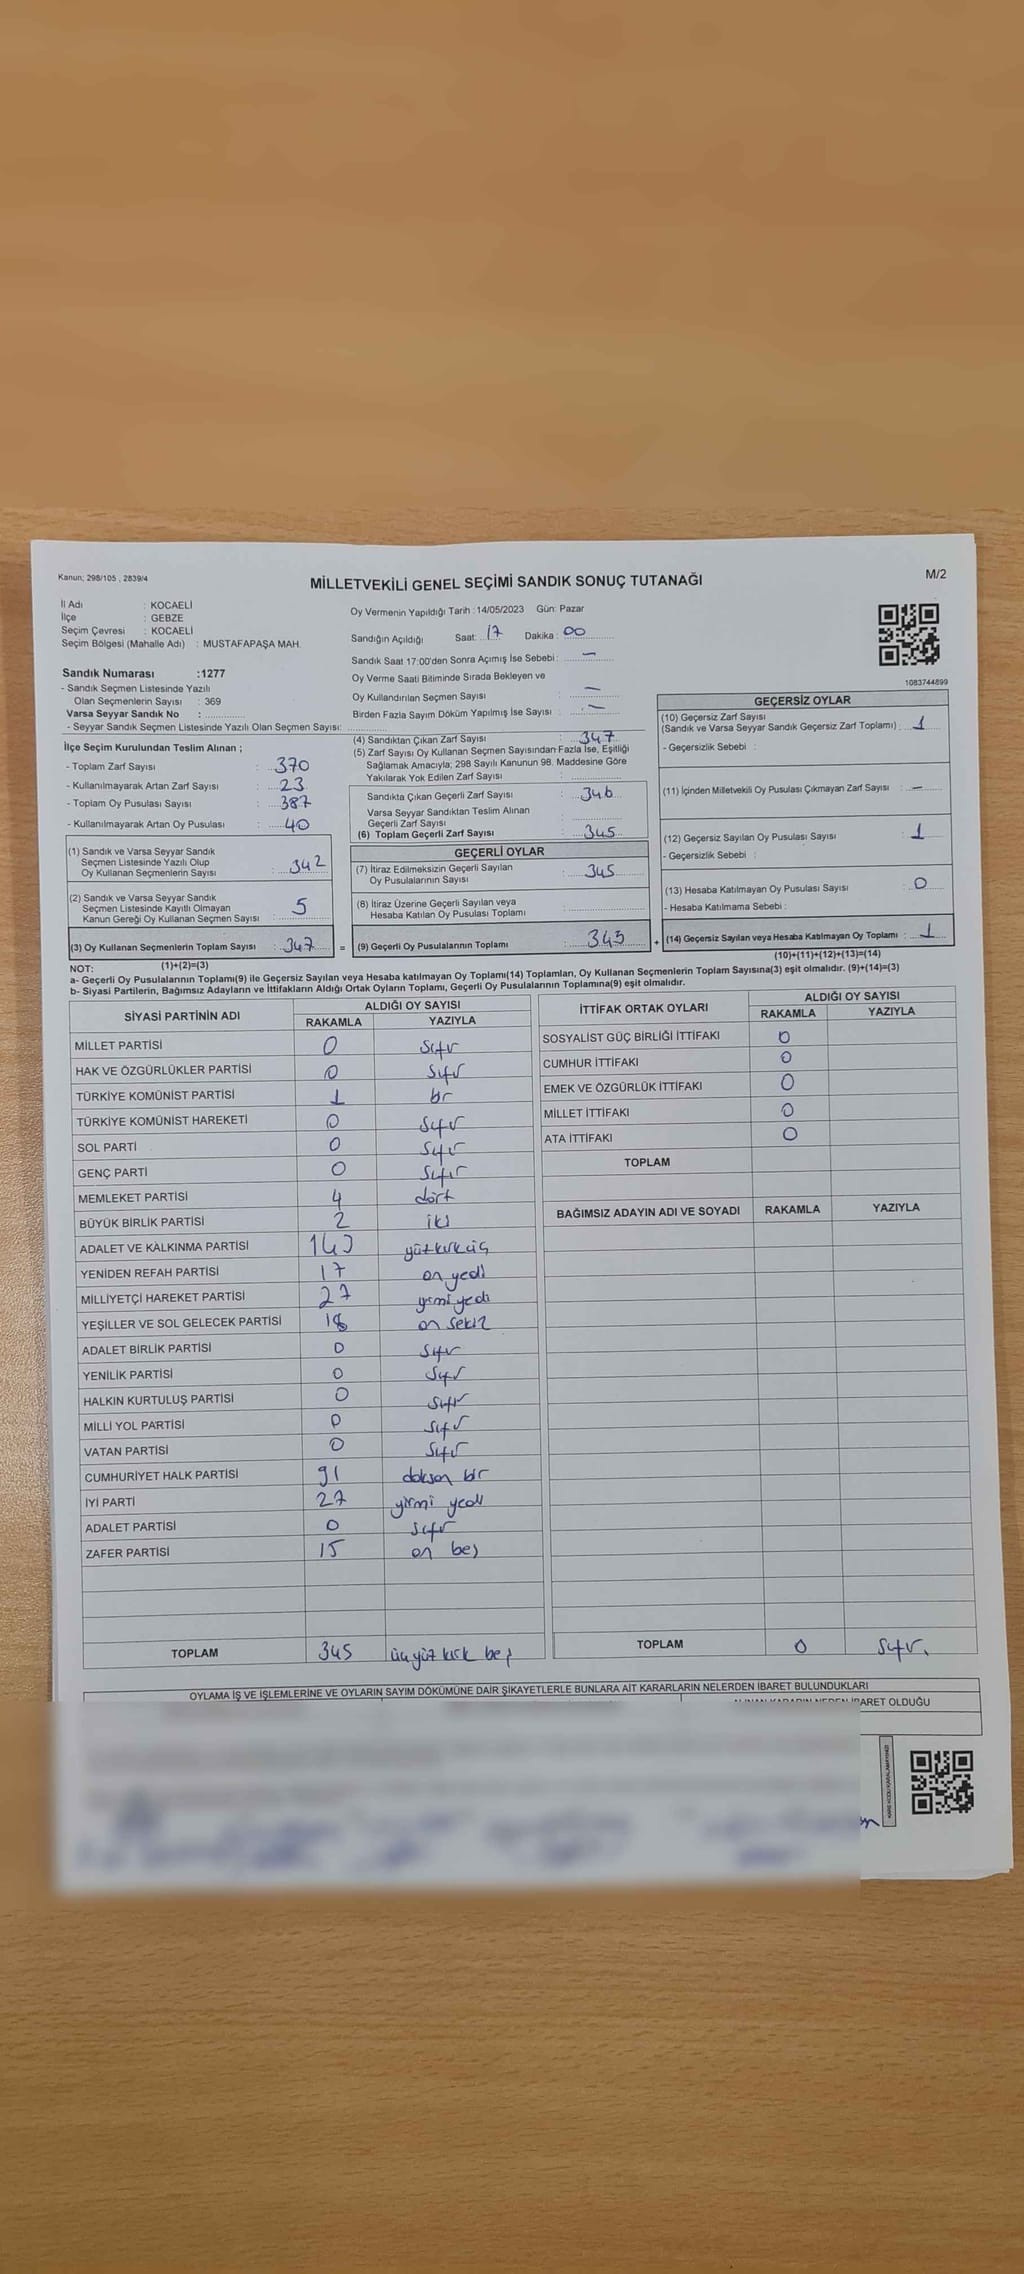 Kanun; 298/105 , 2839/4
MİLLETVEKİLİ GENEL SEÇİMİ SANDIK SONUÇ TUTANAĞI
M/2
İl Adı : KOCAELİ
İlçe : GEBZE
Seçim Çevresi : KOCAELİ
Seçim Bölgesi (Mahalle Adı) : MUSTAFAPAŞA MAH.
Sandık Numarası :1277
- Sandık Seçmen Listesinde Yazılı
Olan Seçmenlerin Sayısı : 369
Varsa Seyyar Sandık No :
- Seyyar Sandık Seçmen Listesinde Yazılı Olan Seçmen Sayısı:
İlçe Seçim Kurulundan Teslim Alınan ;
- Toplam Zarf Sayısı : 370
- Kullanılmayarak Artan Zarf Sayısı : 23
- Toplam Oy Pusulası Sayısı : 387
- Kullanılmayarak Artan Oy Pusulası : 40
(1) Sandık ve Varsa Seyyar Sandık
Seçmen Listesinde Yazılı Olup
Oy Kullanan Seçmenlerin Sayısı : 342
(2) Sandık ve Varsa Seyyar Sandık
Seçmen Listesinde Kayıtlı Olmayan
Kanun Gereği Oy Kullanan Seçmen Sayısı : 5
(3) Oy Kullanan Seçmenlerin Toplam Sayısı : 347 =
(1)+(2)=(3)
Oy Vermenin Yapıldığı Tarih : 14/05/2023 Gün: Pazar
Sandığın Açıldığı Saat: 17 Dakika : 00
Sandık Saat 17:00'den Sonra Açımış İse Sebebi : —
Oy Verme Saati Bitiminde Sırada Bekleyen ve
Oy Kullandırılan Seçmen Sayısı : —
Birden Fazla Sayım Döküm Yapılmış İse Sayısı : —
(4) Sandıktan Çıkan Zarf Sayısı : 347
(5) Zarf Sayısı Oy Kullanan Seçmen Sayısından Fazla İse, Eşitliği
Sağlamak Amacıyla; 298 Sayılı Kanunun 98. Maddesine Göre
Yakılarak Yok Edilen Zarf Sayısı :
Sandıkta Çıkan Geçerli Zarf Sayısı : 346
Varsa Seyyar Sandıktan Teslim Alınan
Geçerli Zarf Sayısı :
(6) Toplam Geçerli Zarf Sayısı : 345
GEÇERLİ OYLAR
(7) İtiraz Edilmeksizin Geçerli Sayılan
Oy Pusulalarının Sayısı : 345
(8) İtiraz Üzerine Geçerli Sayılan veya
Hesaba Katılan Oy Pusulası Toplamı :
(9) Geçerli Oy Pusulalarının Toplamı : 345 +
1083744899
GEÇERSİZ OYLAR
(10) Geçersiz Zarf Sayısı
(Sandık ve Varsa Seyyar Sandık Geçersiz Zarf Toplamı) : 1
- Geçersizlik Sebebi :
(11) İçinden Milletvekili Oy Pusulası Çıkmayan Zarf Sayısı : —
(12) Geçersiz Sayılan Oy Pusulası Sayısı : 1
- Geçersizlik Sebebi :
(13) Hesaba Katılmayan Oy Pusulası Sayısı : 0
- Hesaba Katılmama Sebebi :
(14) Geçersiz Sayılan veya Hesaba Katılmayan Oy Toplamı : 1
(10)+(11)+(12)+(13)=(14)
NOT:
a- Geçerli Oy Pusulalarının Toplamı(9) ile Geçersiz Sayılan veya Hesaba katılmayan Oy Toplamı(14) Toplamları, Oy Kullanan Seçmenlerin Toplam Sayısına(3) eşit olmalıdır. (9)+(14)=(3)
b- Siyasi Partilerin, Bağımsız Adayların ve İttifakların Aldığı Ortak Oyların Toplamı, Geçerli Oy Pusulalarının Toplamına(9) eşit olmalıdır.
SİYASİ PARTİNİN ADI ALDIĞI OY SAYISI
RAKAMLA YAZIYLA
MİLLET PARTİSİ 0 Sıfır
HAK VE ÖZGÜRLÜKLER PARTİSİ 0 Sıfır
TÜRKİYE KOMÜNİST PARTİSİ 1 bir
TÜRKİYE KOMÜNİST HAREKETİ 0 Sıfır
SOL PARTİ 0 Sıfır
GENÇ PARTİ 0 Sıfır
MEMLEKET PARTİSİ 4 dört
BÜYÜK BİRLİK PARTİSİ 2 iki
ADALET VE KALKINMA PARTİSİ 143 yüzkırküç
YENİDEN REFAH PARTİSİ 17 on yedi
MİLLİYETÇİ HAREKET PARTİSİ 27 yirmi yedi
YEŞİLLER VE SOL GELECEK PARTİSİ 18 on sekiz
ADALET BİRLİK PARTİSİ 0 Sıfır
YENİLİK PARTİSİ 0 Sıfır
HALKIN KURTULUŞ PARTİSİ 0 Sıfır
MİLLİ YOL PARTİSİ 0 Sıfır
VATAN PARTİSİ 0 Sıfır
CUMHURİYET HALK PARTİSİ 91 doksan bir
İYİ PARTİ 27 yirmi yedi
ADALET PARTİSİ 0 Sıfır
ZAFER PARTİSİ 15 on beş
TOPLAM 345 üçyüz kırk beş
İTTİFAK ORTAK OYLARI ALDIĞI OY SAYISI
RAKAMLA YAZIYLA
SOSYALİST GÜÇ BİRLİĞİ İTTİFAKI 0
CUMHUR İTTİFAKI 0
EMEK VE ÖZGÜRLÜK İTTİFAKI 0
MİLLET İTTİFAKI 0
ATA İTTİFAKI 0
TOPLAM
BAĞIMSIZ ADAYIN ADI VE SOYADI RAKAMLA YAZIYLA
TOPLAM 0 Sıfır.
OYLAMA İŞ VE İŞLEMLERİNE VE OYLARIN SAYIM DÖKÜMÜNE DAİR ŞİKAYETLERLE BUNLARA AİT KARARLARIN NELERDEN İBARET BULUNDUKLARI
ALINAN KARARIN NEDEN İBARET OLDUĞU
KARE KODU KARALAMAYINIZ!